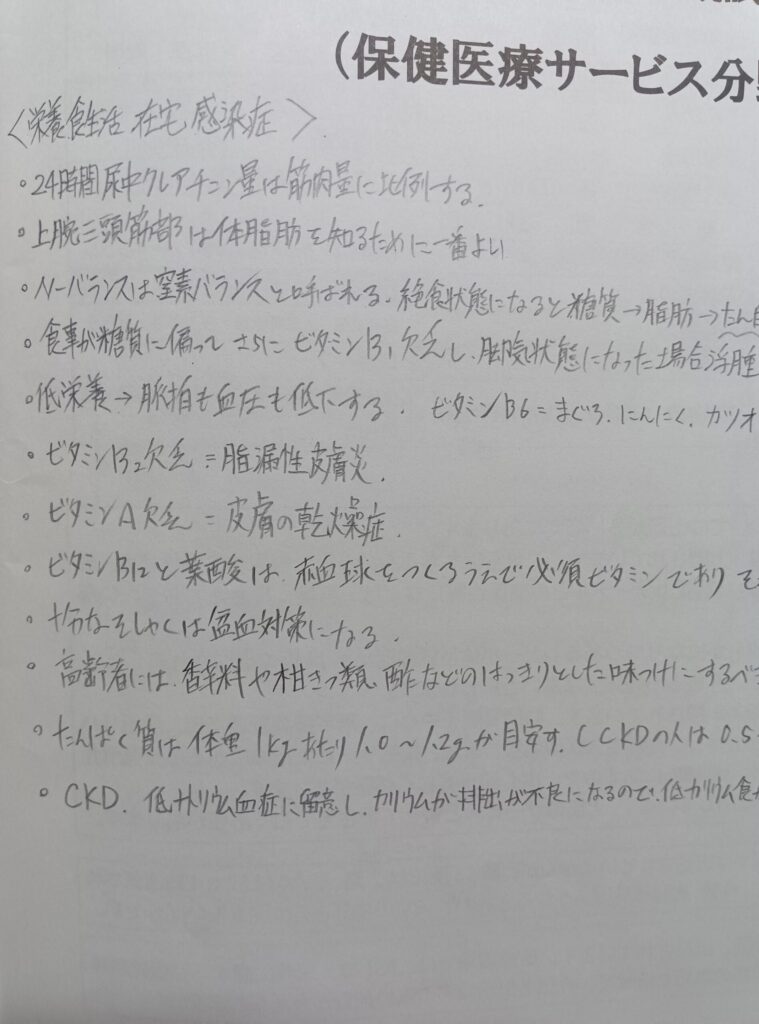 (保健医療サービス分
〈栄養食生活 在宅 感染症〉
・24時間尿中クレアチニン量は筋肉量に比例する。
・上腕三頭筋部は体脂肪を知るために一番よい
・N-バランスは窒素バランスと呼ばれる。絶食状態になると糖質→脂肪→たん
・食事が糖質に偏って さらに ビタミンB1欠乏し、脚気状態になった場合浮腫
・低栄養→脈拍も血圧も低下する。 ビタミンB6=まぐろ、にんにく、カツオ
・ビタミンB2欠乏=脂漏性皮膚炎。
・ビタミンA欠乏=皮膚の乾燥症。
・ビタミンB12と葉酸は、赤血球をつくるうえで必須ビタミンであり そ
・十分なそしゃくは 対策になる。
・高齢者には、香辛料や柑きつ類、酢などのはっきりとした味つけにするべ
・たんぱく質は 体重1kgあたり1.0〜1.2gが目安す。(CKDの人は0.5
・CKD、低ナトリウム血症に留意し、カリウムが排出が不良になるので、低カリウム食